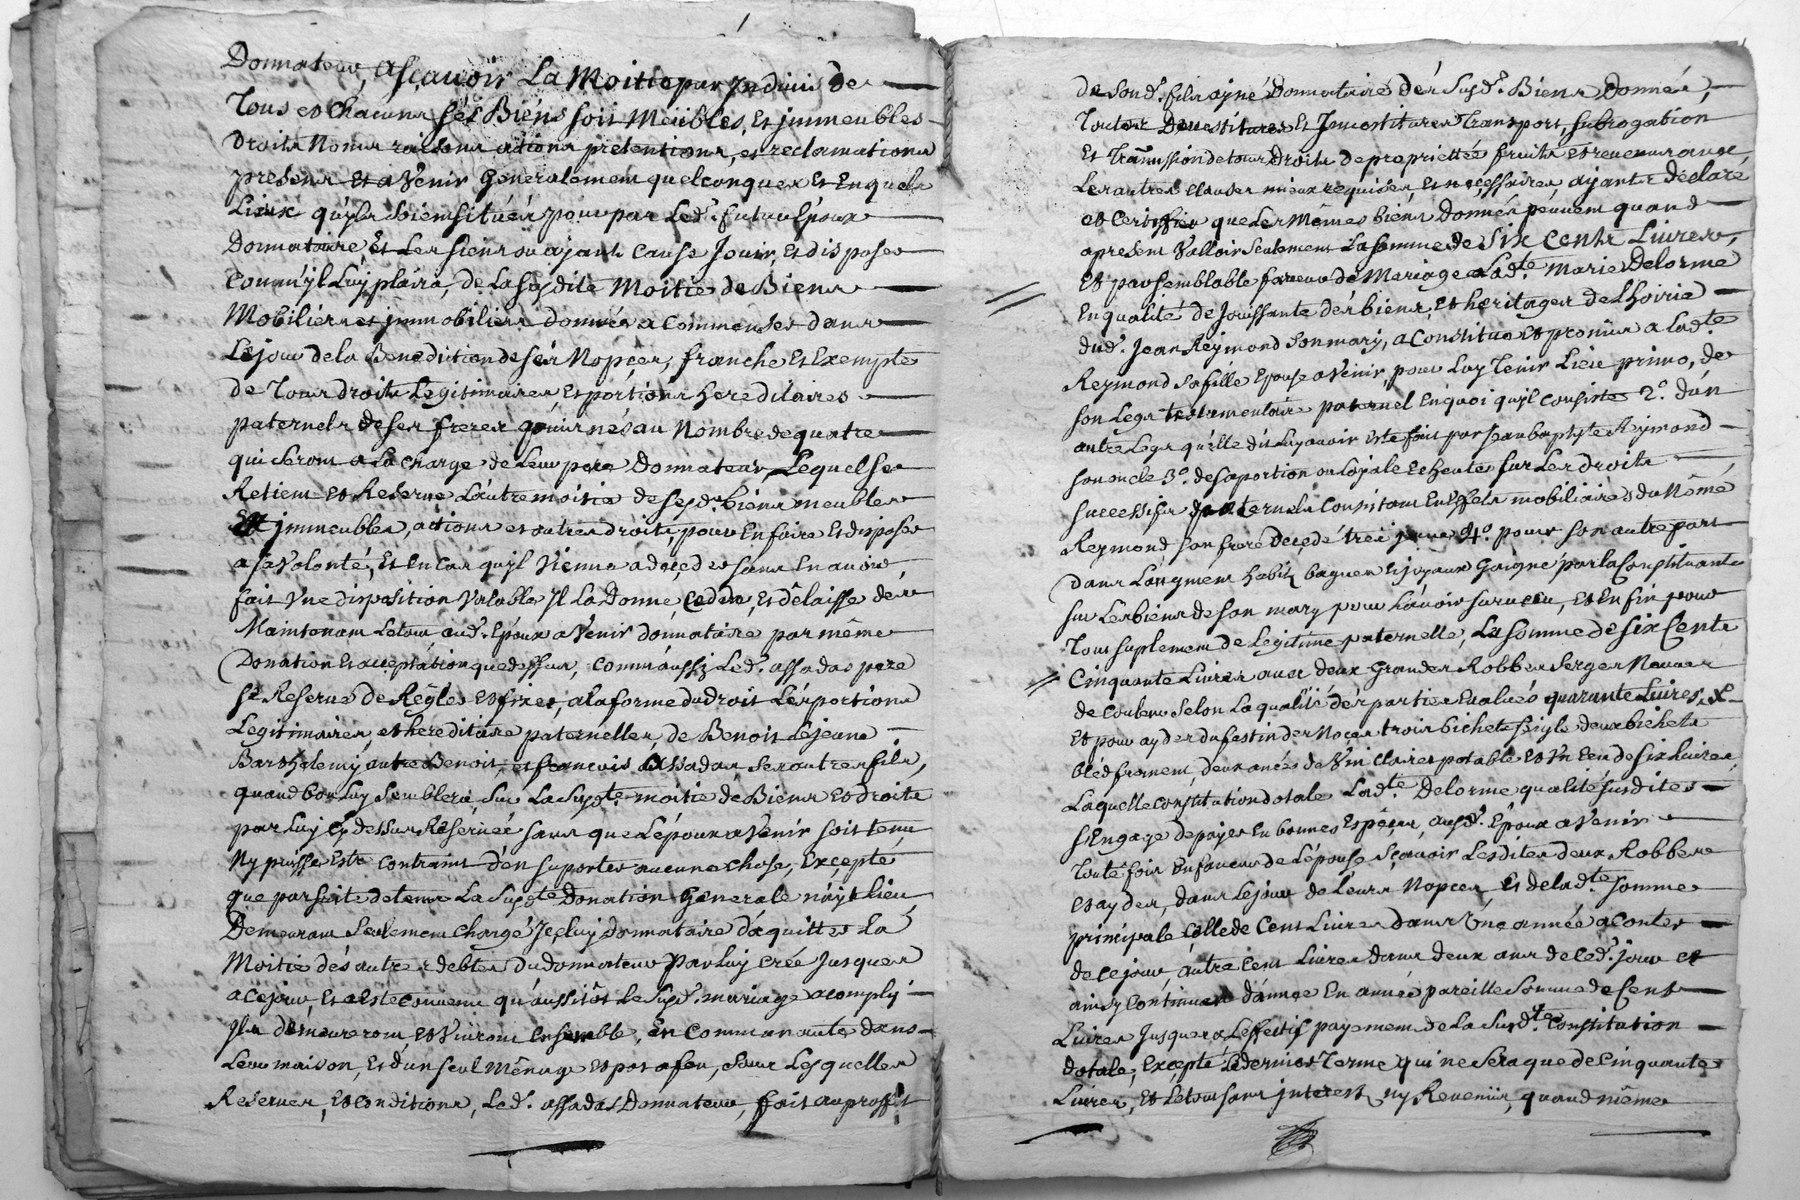 Donnateur, asçavoir La Moitie par Indivis de
Tous et chacuns ses Biens soit Meubles, Et jmmeubles
droits Noms raisons actions prétentions, et reclamations
presens Et a Venir Generalement quelconques Et En quels
Lieux qu'jls Soient situés pour par Led. futur Epoux
Donnataire, Et Les siens ou ajant Cause Jouir, Et disposer
Comm'jl Luy plaira, de La susdite Moitie de Biens
Mobiliers et jmmobiliers donnés a Commencer dans
Le jour de la Benediction de ses Nopces, franche Et Exempte
de Tous droits Legitimaires Et portions hereditaires
paternels de ses freres au Nombre de quatre
qui Seront a La charge de Leur pere Donnateur, Lequel se
Retient et Reserve L'autre moitie de sesd. biens meubles
Et jmmeubles, actions et autres droits, pour En faire Et disposer
a sa Volonté, Et En Cas qu'jl Vienne a deçeder sans En avoir
fait Vne disposition Valable Jl La Donne Cede, Et délaisse des
Maintenant Letout aud. Epoux a Venir donnataire par même
Donation Et acceptation que dessus, Comm'aussy Led. assadas pere
se Reserve de Régler et fixer, a la forme du droit Les portions
Legitimaires, et hereditaires paternelles, de Benoit Lejeune,
Barthelemy autre Benoit, et francois assadas, ses autres fils,
quand bon Luy Semblera Sur La susdte moitie de Biens et droits
par Luy cy dessus Reservée sans que L'époux a Venir soit tenu
Ny puisse Estre Contraint d'en suporter aucune chose, Excepté
que par faite de tems La susdte Donation Generale n'ayt Lieu
Demeurant Seulement chargé Jceluy donnataire d'aquitter La
Moitie des autres debtes du donnateur Par Luy créé Jusques
a ce jour, Et a Esté Convenu qu'aussitôt Le susd. mariage acomply
Jls demeureront, et Vivront Ensemble, En Communauté dans
Leur maison, Et d'un seul Ménage et pot a feu, sous Lesquelles
Reserves, Et Conditions, Led. assadas Donnateur, fait au proffit
de sond. fils ajné Donnataire des susd. Biens Donnés,
Toutes Devestitures Et Jnvestitures Transport, subrogation
Et Transmission de tous droits de propriettée fruits et revenus avec
Les autres clauses mieux requises Et necessaires, ajants déclaré
et Certiffié que Les Mêmes biens Donnés peuvent quand
apresent Valloir Seulement La somme de Six Cents Livres,
Et par semblable faveur de Mariage Ladte Marie Delorme
En qualité de Jouissante des biens, Et heritages de L'hoirie
dud. Jean Reymond Son mary, a Constitué et promis a Ladte
Reymond sa fille Epouse a Venir, pour Luy Tenir Lieu primo, de
son Legs testamentaire paternel En quoi qu'jl Consiste 2.º d'un
autre Legs qu'elle dit Luy avoir Esté fait par Jean baptiste Reymond
son oncle 3.º de sa portion sur Les droits
successifs paternels Consistans En Effets mobiliaires du Même
Reymond Son frere Decedé 4.º pour son autre part
dans L'augment habits bagues Et joyaux Gaigné par la Constituante
sur Les biens de son mary pour L'avoir survecu, Et En fin pour
Tout suplement de Legitime paternelle, La Somme de Six Cents
Cinquante Livres avec deux Grandes Robbes serges Neuves
de Couleur Selon La qualité des parties Evalués quarante Livres,
Et pour ayder du festin des Noces trois bichets seigle deux bichets
bled froment, deux anées de Vin claires potable Et Vn Ecu de six Livres,
Laquelle Constitution dotale Ladte Delorme qualité susdites
s'Engage de payer En bonnes Especes, ausd. Epoux a Venir
Toute fois En faveur de L'épouse, Sçavoir Lesdites deux Robbes
et ayder, dans Le jour de Leurs Nopces, Et de ladte Somme
principale Celle de Cent Livres dans Une année a Conter
de Ce jour, autre Cent Livres dans deux ans de Ced. jour et
ainsy Continuer d'année En année pareille Somme de Cent
Livres Jusques a L'effectif payement de La susdte Constitution
dotale, Excepté Le dernier Terme qui ne sera que de Cinquante
Livres, Et Letout sans jnterest ny Revenus, quand même